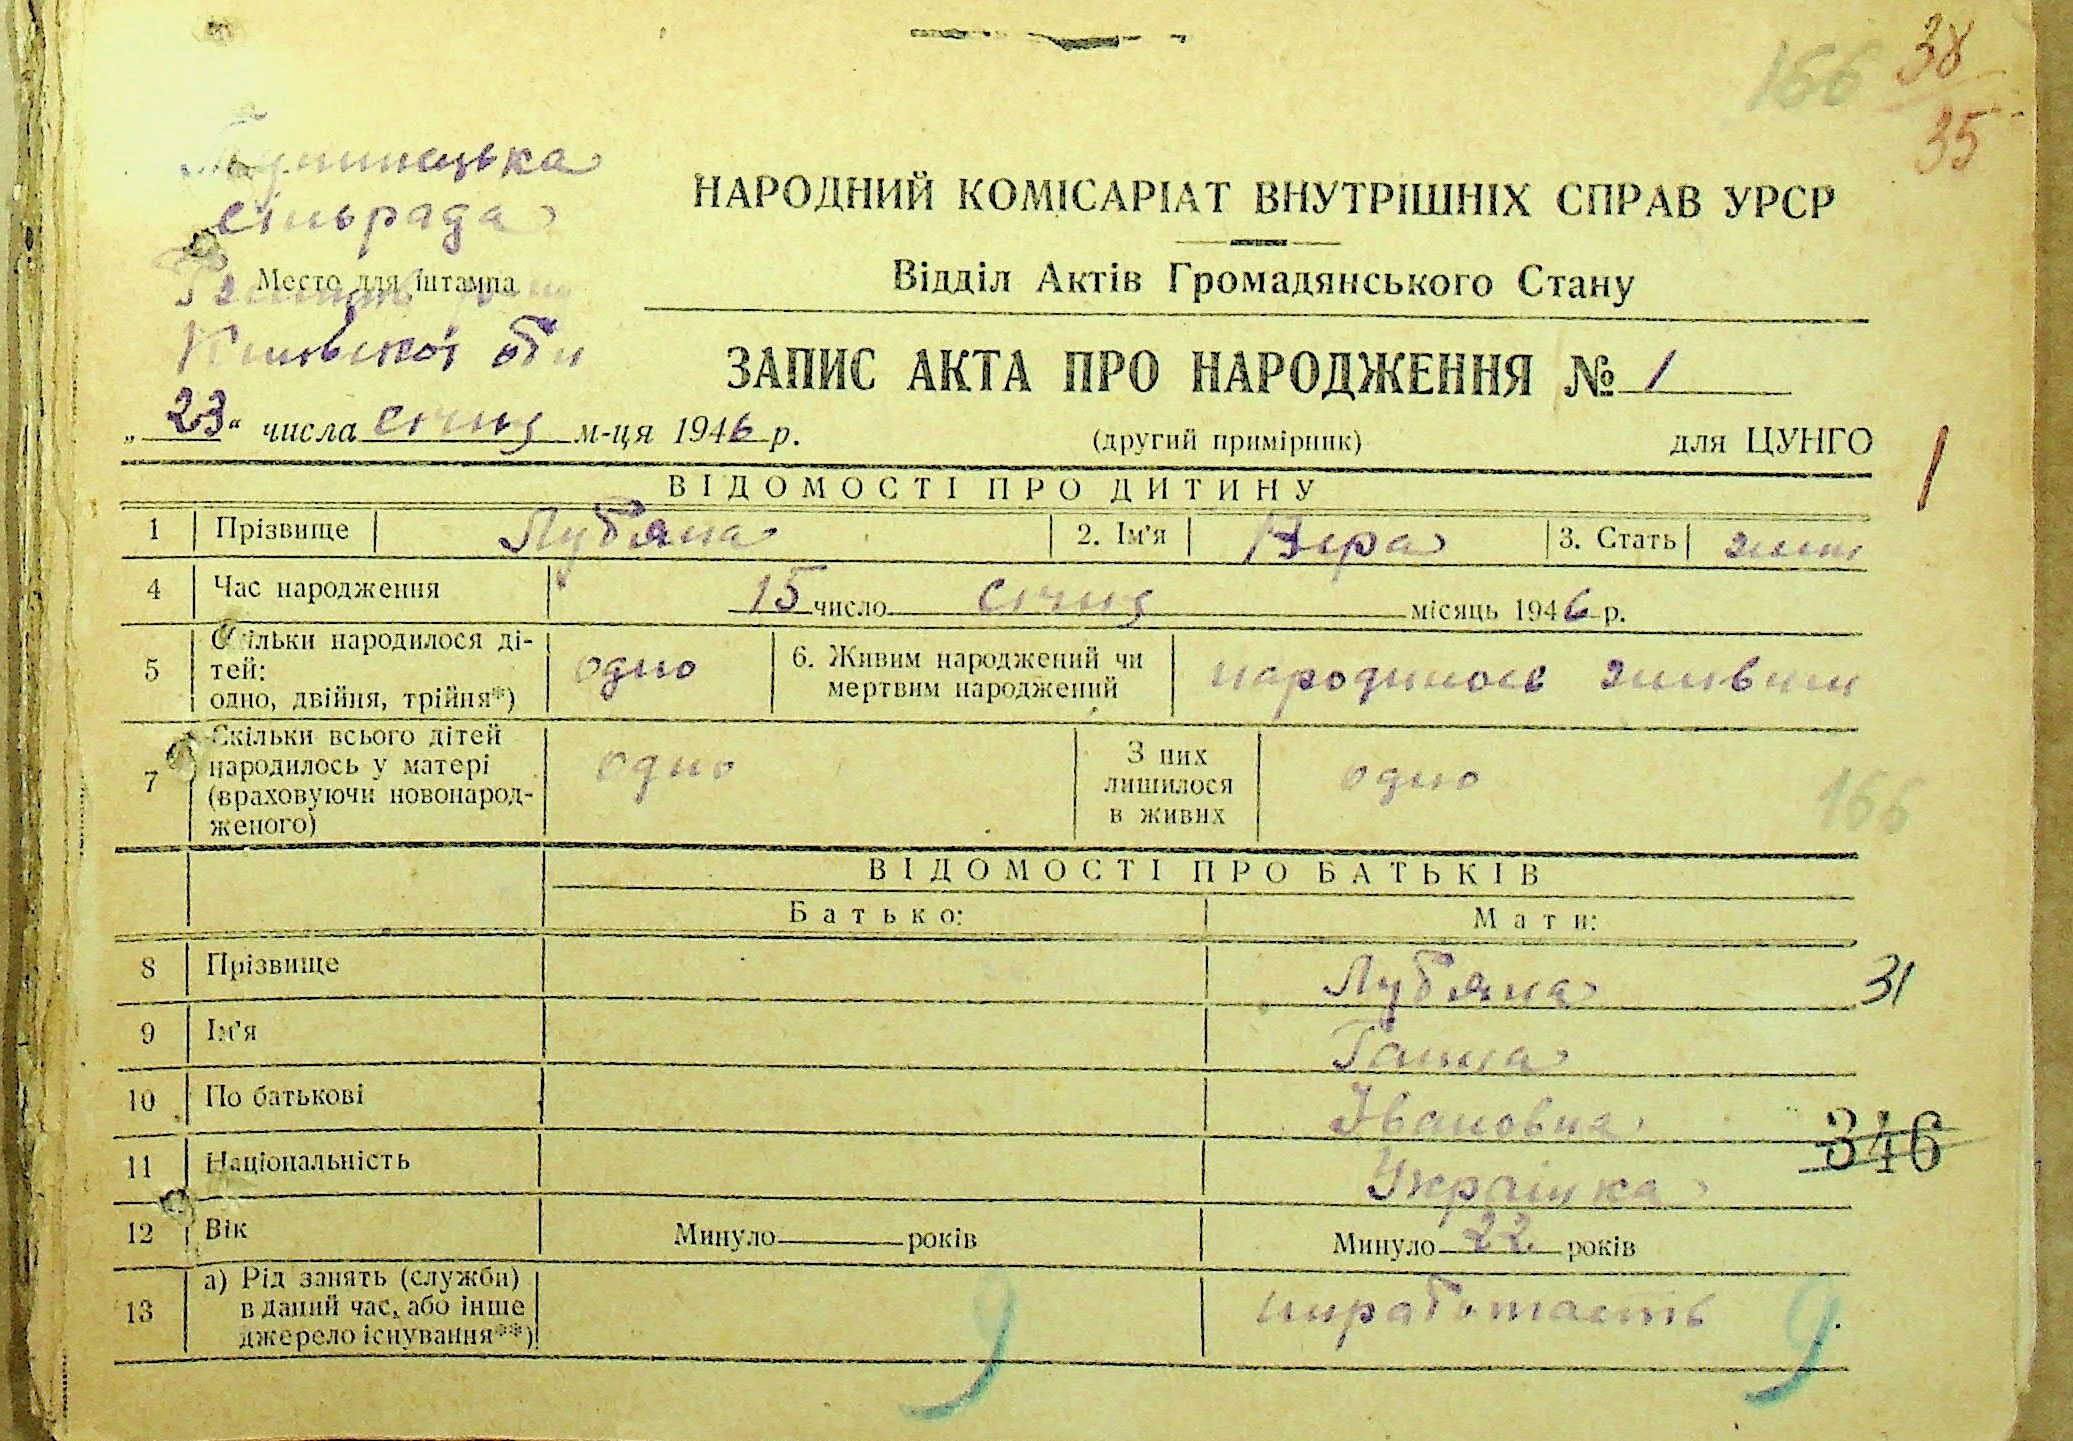 166 38
35
сільрада
Место для штампа
Київської обл
НАРОДНИЙ КОМІСАРІАТ ВНУТРІШНІХ СПРАВ УРСР
Відділ Актів Громадянського Стану
ЗАПИС АКТА ПРО НАРОДЖЕННЯ № 1
„23“ числа січня м-ця 1946 р. (другий примірник) для ЦУНГО
1
ВІДОМОСТІ ПРО ДИТИНУ
1 Прізвище Лубяна 2. Ім'я Віра 3. Стать жин
4 Час народження 15 число січня місяць 1946 р.
5 Скільки народилося ді-
тей:
одно, двійня, трійня*) одно 6. Живим народжений чи
мертвим народжений народилось живим
7 Скільки всього дітей
народилось у матері
(враховуючи новонарод-
женого) одно З них
лишилося
в живих одно
166
ВІДОМОСТІ ПРО БАТЬКІВ
Батько: Мати:
8 Прізвище Лубяна 31
9 Ім'я Ганна
10 По батькові Івановна
346
11 Національність Українка
12 Вік Минуло років Минуло 22 років
13 а) Рід занять (служби)
в даний час, або інше
джерело існування**)
9 9